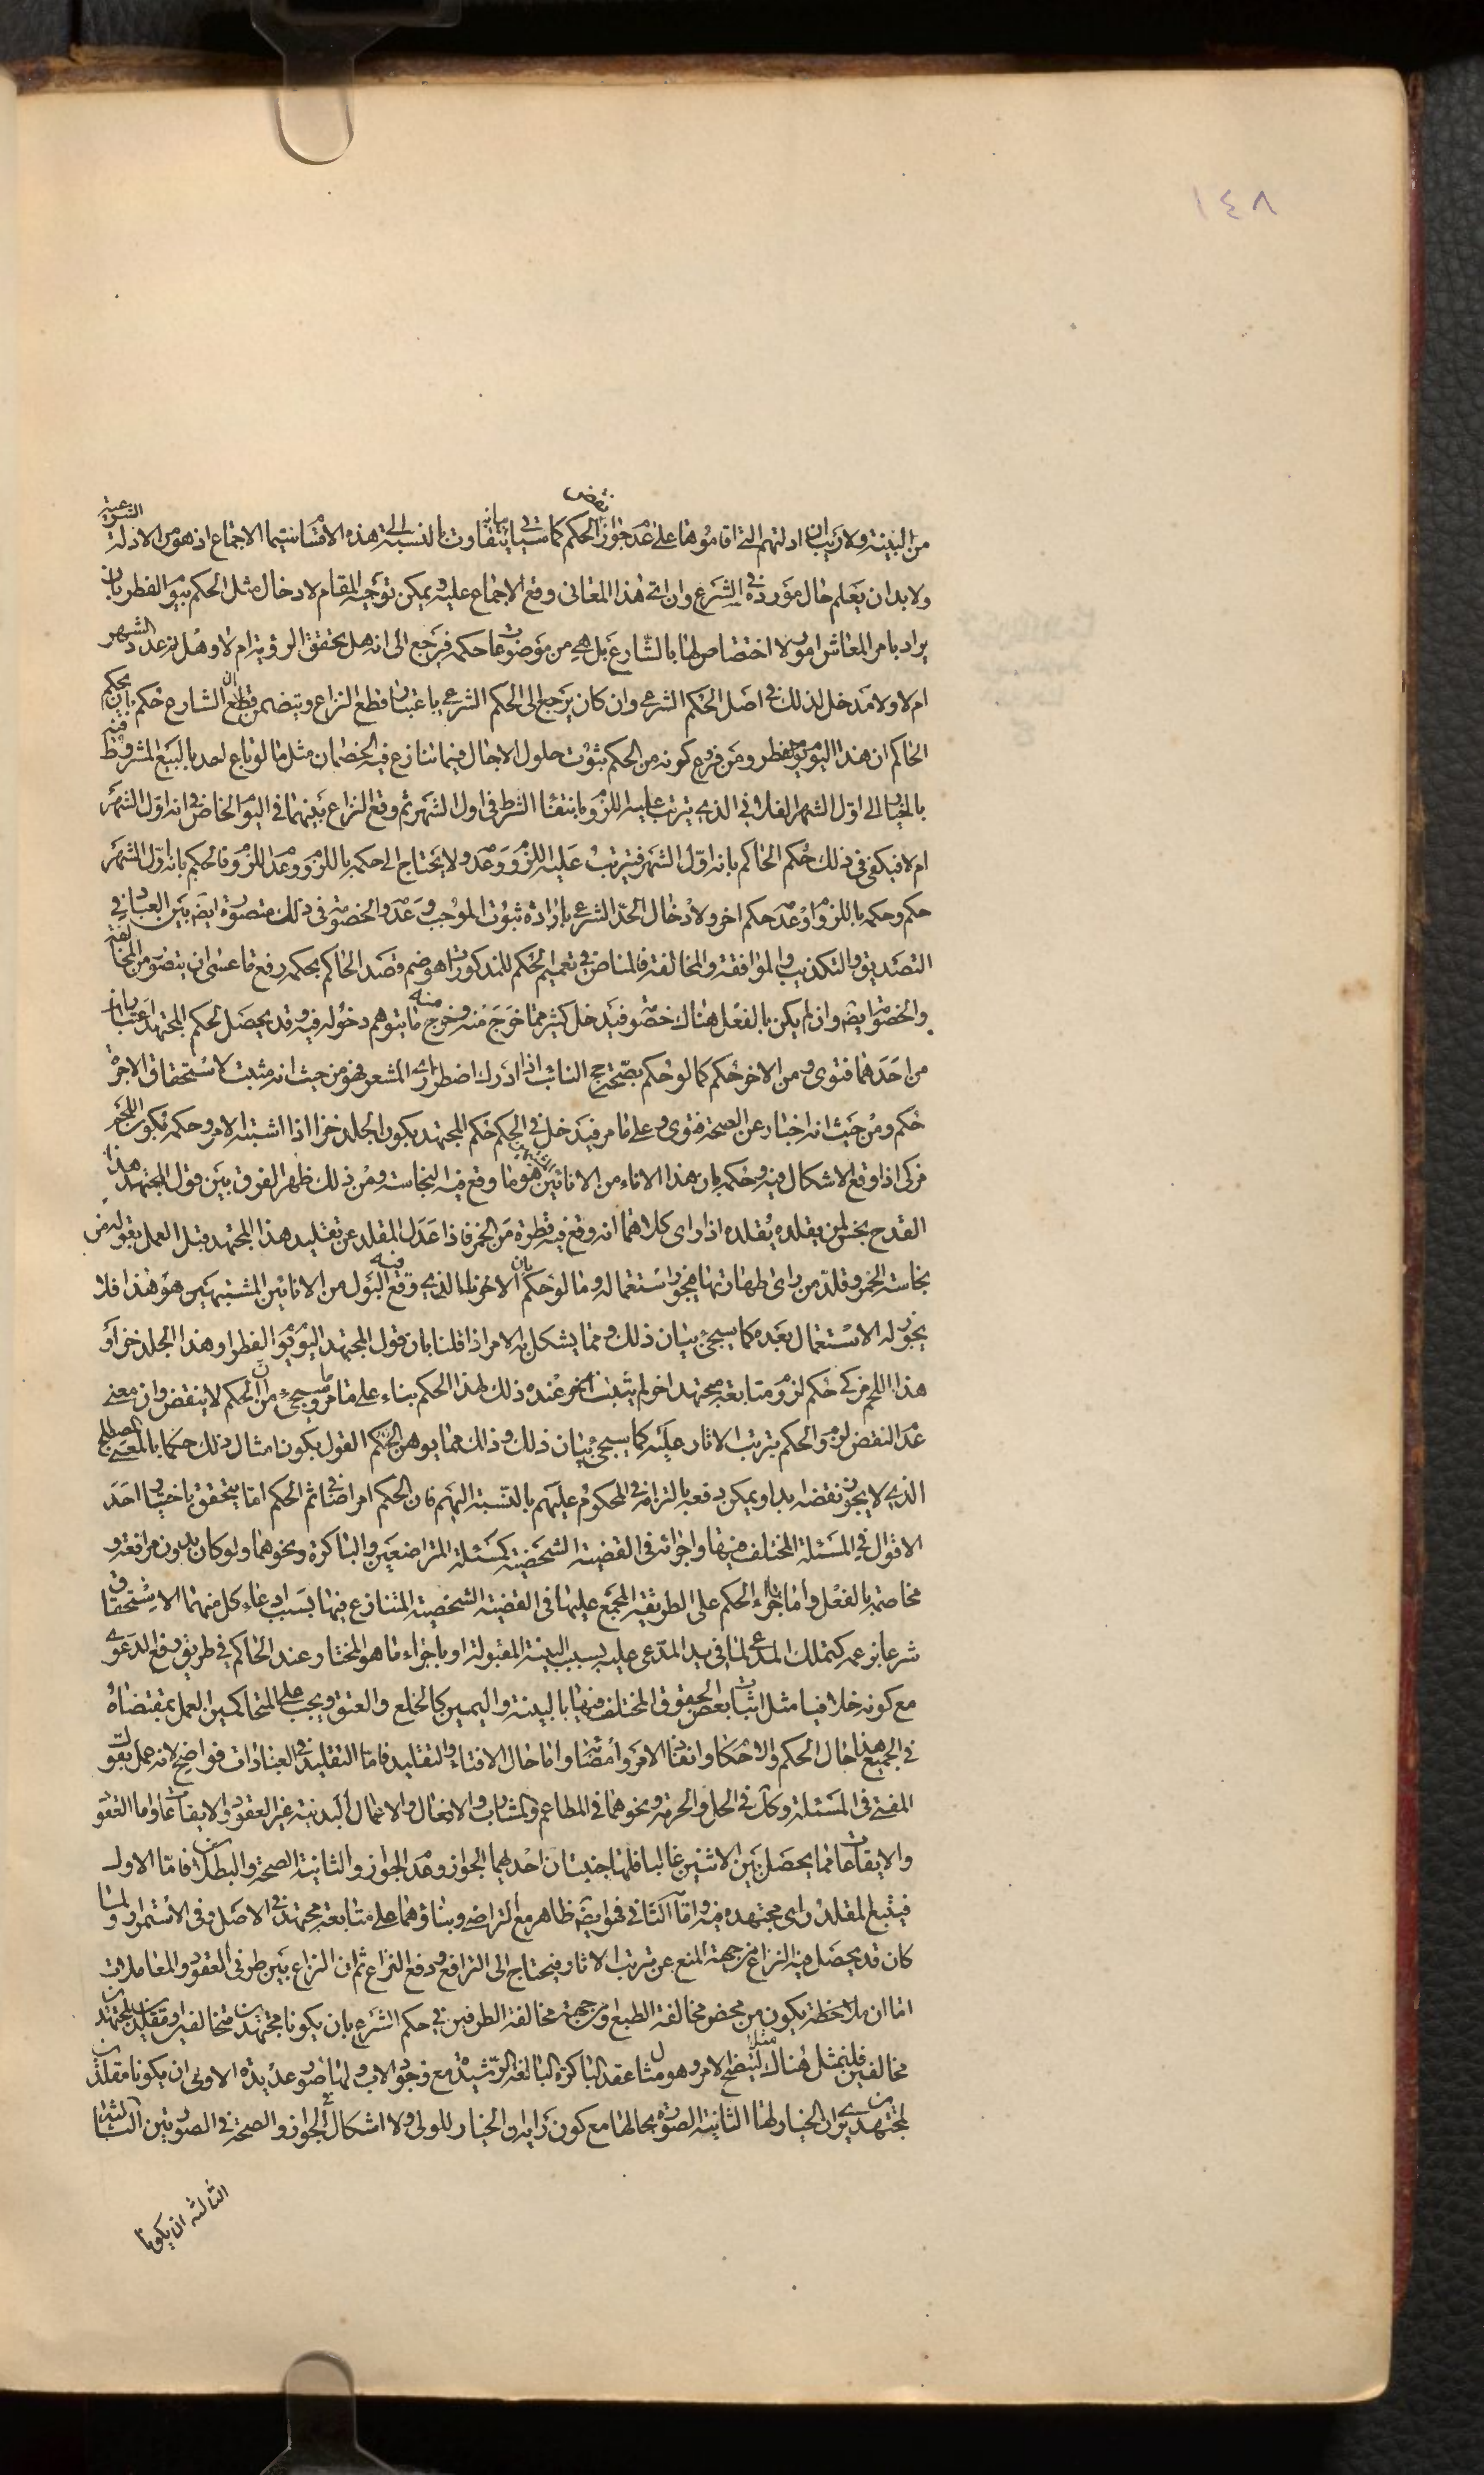 ١٤٨
من البينة ولا ريب ان ادلتهم التي اقاموها على عدم جواز نقض الحكم كما سيأتي بيانه يتفاوت بالنسبة الى هذه الاقسام سيما الاجماع اذ هو من الادلة الشرعية
ولا بد ان يعلم حال مورده في الشرع وان اي هذا المعاني وقع الاجماع عليه ويمكن توجيه المقام لادخال مثل الحكم بيوم الفطر بان
يراد بامر المعاش امور لا اختصاص لها بالشارع بل هي من موضوعات حكمه فيرجع الى انه هل يحقق الرؤية ام لا وهل تم عدد الشهر
ام لا ولا مدخل لذلك في اصل الحكم الشرعي وان كان يرجع الى الحكم الشرعي باعتبار قطع النزاع ويتضمن قطع ان الشارع حكم بان يحكم
الحاكم ان هذا اليوم يوم فطر ومن فروع كونه من الحكم ثبوت حلول الاجال فيما تنازع فيه الخصمان مثل ما لو باع احد بالبيع المشروط فيه
بالخيار الى اول الشهر الفلاني الذي يترتب عليه اللزوم بانتفاء الشرط في اول الشهر ثم وقع النزاع بينهما في اليوم الخاص في انه اول الشهر
ام لا فيكفي في ذلك حكم الحاكم بانه اول الشهر فيترتب عليه اللزوم وعدمه ولا يحتاج الى حكمه باللزوم وعدم اللزوم فالحكم بانه اول الشهر
حكم وحكمه باللزوم او عدمه حكم اخر ولادخال الحد الشرعي بارادة ثبوت الموجب وعدمه والخصومة في ذلك متصورة ايضا بين العباد في
التصديق والتكذيب والموافقة والمخالفة فالمناص في تعميم الحكم للمذكورات هو ضم قصد الحاكم بحكمه رفع ما عسى ان يتصور من المخالفة
والخصومة ايضا وان لم يكن بالفعل هناك خصومة فيدخل كثير مما خرج منه وخرج منه ما يتوهم دخوله فيه وقد يحصل لحكم المجتهد اعتباران
من احدهما فتوى ومن الاخر حكم كما لو حكم بصحة حج النائب اذا ادرك اضطراري المشعر فهو من حيث انه مثبت لاستحقاق الاجرة
حكم ومن حيث انه اخبار عن الصحة فتوى وعلى ما مر فيدخل في الحكم حكم المجتهد بكون الجلد خزا اذا اشتبه الامر وحكمه بكون اللحم
مزكى اذا وقع الاشكال فيه وحكمه بان هذا الاناء من الانائين المشتبهين هو ما وقع فيه النجاسة ومن ذلك ظهر الفرق بين قول المجتهد هذا
القدح نجس لمن يقلده يقلده اذا راى كلاهما انه وقع فيه قطرة من الخمر فاذا عدل المقلد عن تقليد هذا المجتهد قبل العمل بقوله من
نجاسة الخمر وقلد من راى طهارتها فيجوز استعماله وما لو حكم بان الاخر الذي وقع فيه البول من الانائين المشتبهين هو هذا فلا
يجوز له الاستعمال بعده كما سيجئ بيان ذلك ومما يشكل به الامر اذا قلنا بان قول المجتهد اليوم يوم الفطر او هذا الجلد خز او
هذا اللحم مزكى حكم لزوم متابعة مجتهد اخر لم يثبت عنده ذلك لهذا الحكم بناء على ما مر وما سيجئ من ان الحكم لا ينقض وان معنى
عدم النقض لزوم الحكم بترتب الاثار عليه كما سيجئ بيان ذلك وذلك مما يوهن القول بكون امثال ذلك حكما بالمعنى المصطلح
الذي لا يجوز نقضه ابدا ويمكن دفعه بالتزامه في المحكوم عليهم بالنسبة اليهم فان الحكم امر اضافي ثم الحكم اما يتحقق باختيار احد
الاقوال في المسئلة المختلف فيها واجرائه في القضية الشخصية كمسئلة المتراضعين والباكرة ونحوهما ولو كان بدون مرافعة و
مخاصمة بالفعل واما باجراء الحكم على الطريقة المجمع عليها في القضية الشخصية المتنازع فيها بسبب ادعاء كل منهما الاستحقاق
شرعا بزعمه كتملك المدعي لما في يد المدعى عليه بسبب البينة المقبولة او باجراء ما هو المختار عند الحاكم في طريق رفع الدعوى
مع كونه خلافيا مثل اثبات بعض الحقوق المختلف فيها بالبينة واليمين كالخلع والعتق ويجب على المتحاكمين العمل بمقتضاه
في الجميع هذا حال الحكم والاحكام وانفاذ الامر وامضائه واما حال الافتاء والتقليد فاما التقليد في العبادات فواضح لانه عمل بقول
المفتي في المسئلة وكك في الحل والحرمة ونحوهما في المطاعم والمشارب والافعال والاعمال البدنية غير العقود والايقاعات واما العقود
والايقاعات فما يحصل بين الاثنين غالبا فلها جنبتان احدهما الجواز وعدم الجواز والثانية الصحة والبطلان فاما الاول
فيتبع المقلد راى مجتهده فيه واما الثاني فهو ايضا ظاهر مع التراضي وبناؤهما على متابعة مجتهد في الاصل وفي الاستمرار ولما
كان قد يحصل فيه النزاع من جهة المنع عن ترتب الاثار فيحتاج الى الترافع ودفع النزاع ثم ان النزاع بين طرفي العقود والمعاملات
اما ان ملاحظة يكون من محض مخالفة الطبع او من جهة مخالفة الطرفين في حكم الشرع بان يكونا مجتهدين متخالفين او مقلدين لمجتهدين
مخالفين فليمثل هناك مثلا ليتضح الامر وهو مثل عقد الباكرة البالغة الرشيدة مع وجود الاب ولها صور عديدة الاولى ان يكونا مقلدين
لمجتهد يرى ان الخيار لها الثانية الصورة بحالها مع كون رايه ان الخيار للولي ولا اشكال في الجواز والصحة في الصورتين الثالثة
الثالثة ان يكونا